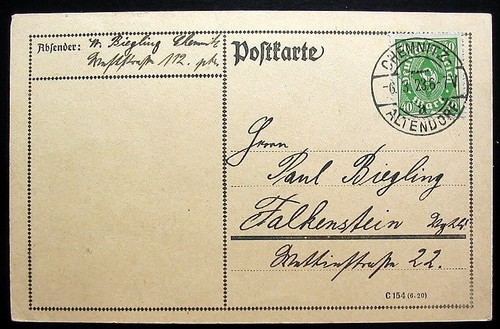 Absender: W. Biegling Chemnitz
Weststraße 112. ptr.
Postkarte
CHEMNITZ-
-6.3.23.6-7V
ALTENDORF
40 40
Herrn
Paul Biegling
Falkenstein Vogtld.
Wettinstraße 22.
C 154 (6. 20)